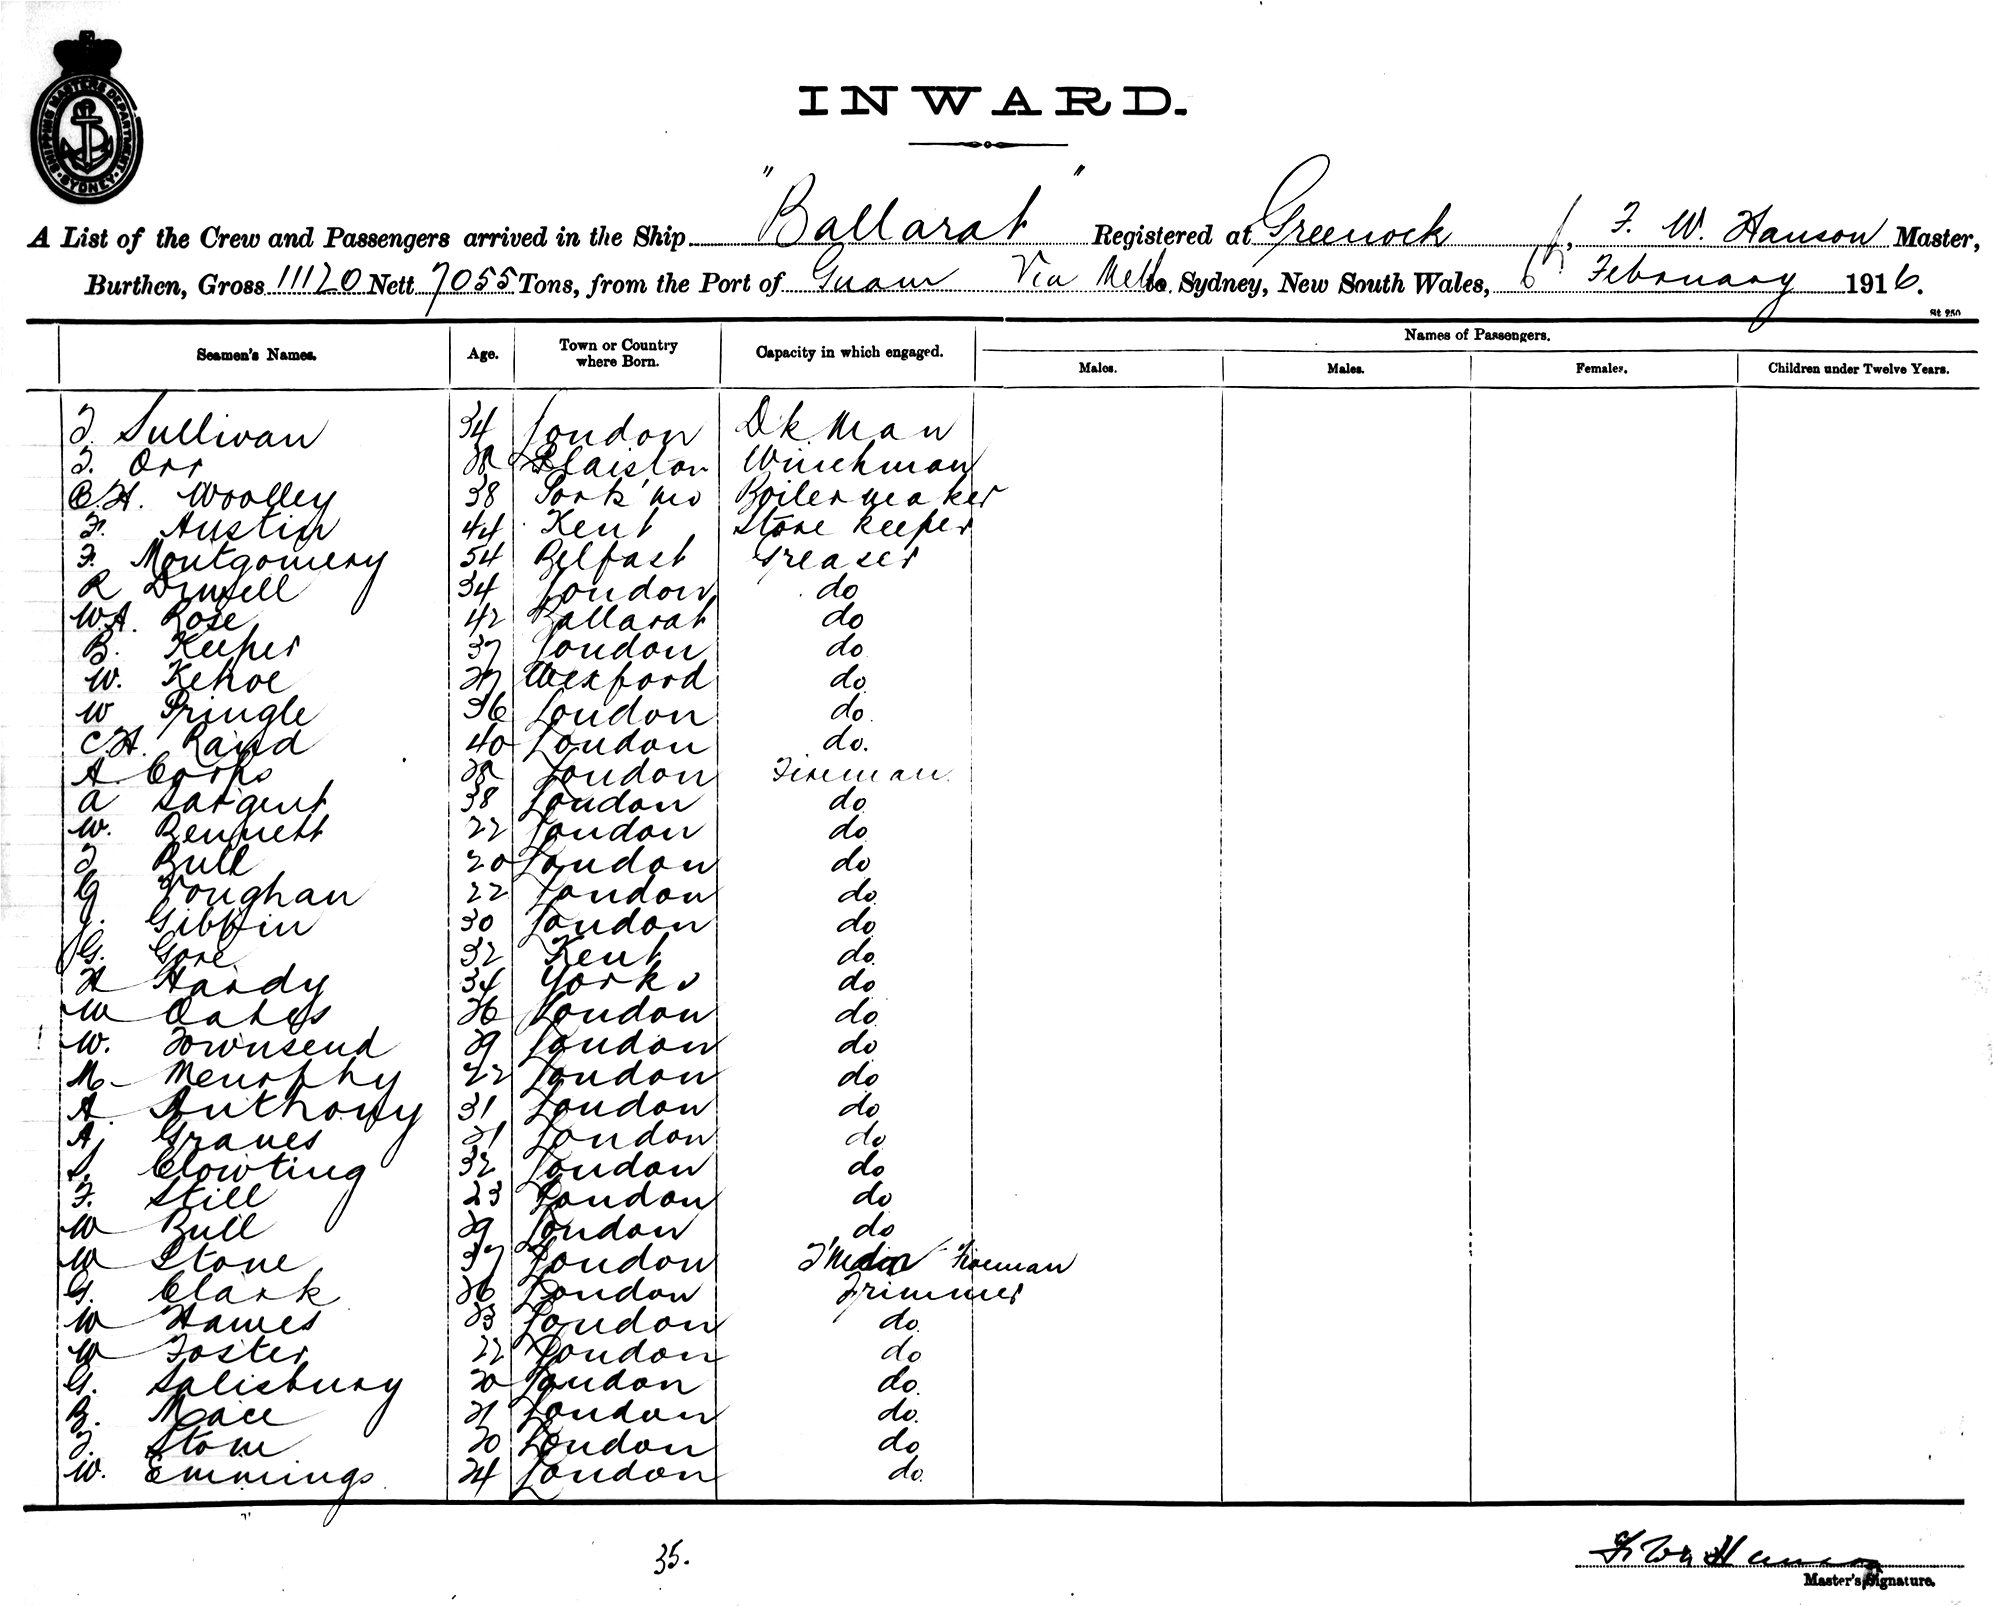 SHIPPING MASTERS DEPARTMENT
SYDNEY
INWARD.
A List of the Crew and Passengers arrived in the Ship "Ballarat" Registered at Greenock, F. W. Hanson Master,
Burthen, Gross 11120 Nett 7055 Tons, from the Port of Guam Via Melb to Sydney, New South Wales, 6th February 1916.
St 250
Seamen's Names. Age. Town or Country where Born. Capacity in which engaged. Names of Passengers.
Males. Males. Females. Children under Twelve Years.
T. Sullivan 34 London Dk Man
T. Orr 38 Plaistow Winchman
C.H. Woolley 38 Ports'mo Boilermaker
F. Austin 44 Kent Store keeper
F. Montgomery 54 Belfast Greaser
R 34 London do
W.A. Rose 42 Ballarat do
B. Keeper 37 London do
W. Kehoe 27 Wexford do
W Pringle 36 London do.
C.H. Rand 40 London do.
A. Corps 28 London Fireman
A Sargent 38 London do
W. Bennett 22 London do
T Bull 20 London do
G Voughan 22 London do
J. Gibbin 30 London do
G. Gore 32 Kent do
H Hardy 34 Yorks do
W Oakes 26 London do
W. Townsend 29 London do
M Meurphy 22 London do
A Anthony 31 London do
A. Graves 21 London do
S. Clowting 32 London do
F. Still 23 London do
W Bull 29 London do
W Stone 37 London Fireman
G. Clark 26 London Trimmer
W Hawes 23 London do
W Foster 22 London do
G. Salisbury 20 London do
B. Mace 21 London do
T. Stone 20 London do
W. Emmings 24 London do
35.
Master's Signature.